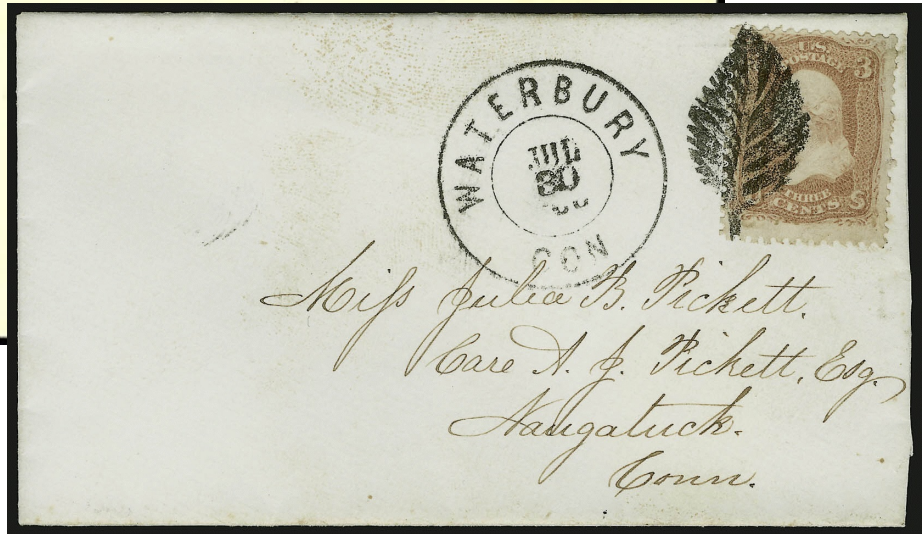 WATERBURY
JUL
30
CON
U.S.
POSTAGE
3
THREE
CENTS
U S
Miss Julia B. Pickett.
Care A. J. Pickett, Esq.
Naugatuck.
Conn.